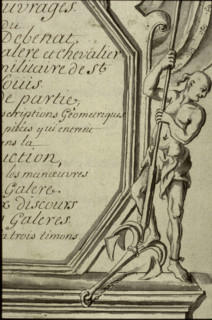 uvrages
du
Debenat,
alere et chevalier
nilitaire de St
Louis.
e partie,
scriptions Géometriques
pièces qui entrent
ns la
uction,
los manœuvres
Galere
x discours
s Galeres
a trois timons